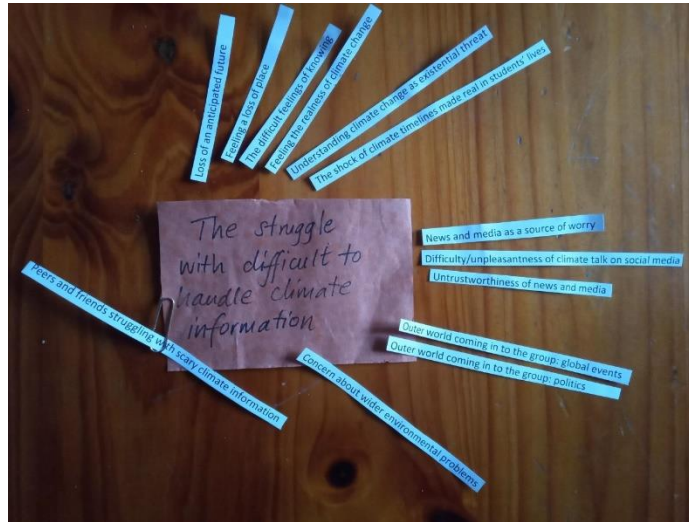 Loss of an anticipated future
Feeling a loss of place
The difficult feelings of knowing
Feeling the realness of climate change
Understanding climate change as existential threat
The shock of climate timelines made real in students' lives
The struggle
with difficult to
handle climate
information
News and media as a source of worry
Difficulty/unpleasantness of climate talk on social media
Untrustworthiness of news and media
Outer world coming in to the group: global events
Outer world coming in to the group: politics
Concern about wider environmental problems
Peers and friends struggling with scary climate information